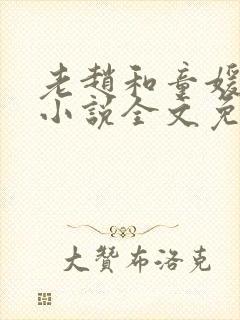 老趙和童媛
小說全文免
大贊布洛克